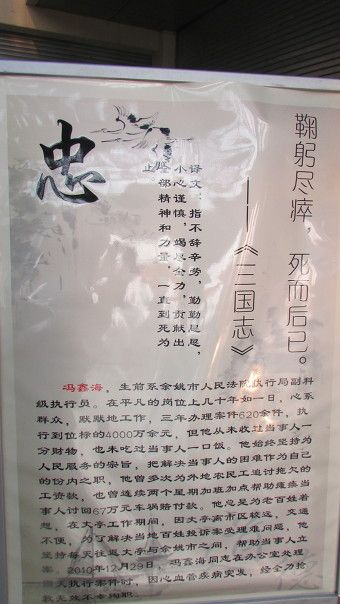 忠
鞠躬尽瘁，死而后已。
——《三国志》
译文：指不辞辛劳，勤勤恳恳，
小心谨慎，竭尽全力，贡献出
全部精神和力量，一直到死为
止。
冯鑫海，生前系余姚市人民法院执行局副科
级执行员。在平凡的岗位上几十年如一日，心系
群众，默默地工作，三年办理案件620余件，执
行到位标的4000万余元，但他从未收过当事人一
分财物，也未吃过当事人一口饭。他始终坚持为
人民服务的宗旨，把解决当事人的困难作为自己
的份内之职，他曾多次为外地农民工追讨拖欠的
工资款，也曾连续两个星期加班加点帮助瘫痪当
事人讨回67万元车祸赔付款。他总是为老百姓着
想，在丈亭工作期间，因丈亭离市区较远，交通
不便，为了解决当地百姓投诉案受理难问题，他
坚持每天往返丈亭与余姚市之间，帮助当事人立
案。2010年12月29日，冯鑫海同志在办公室处理
当天执行案件时，因心血管疾病突发，经全力抢
救无效不幸殉职。